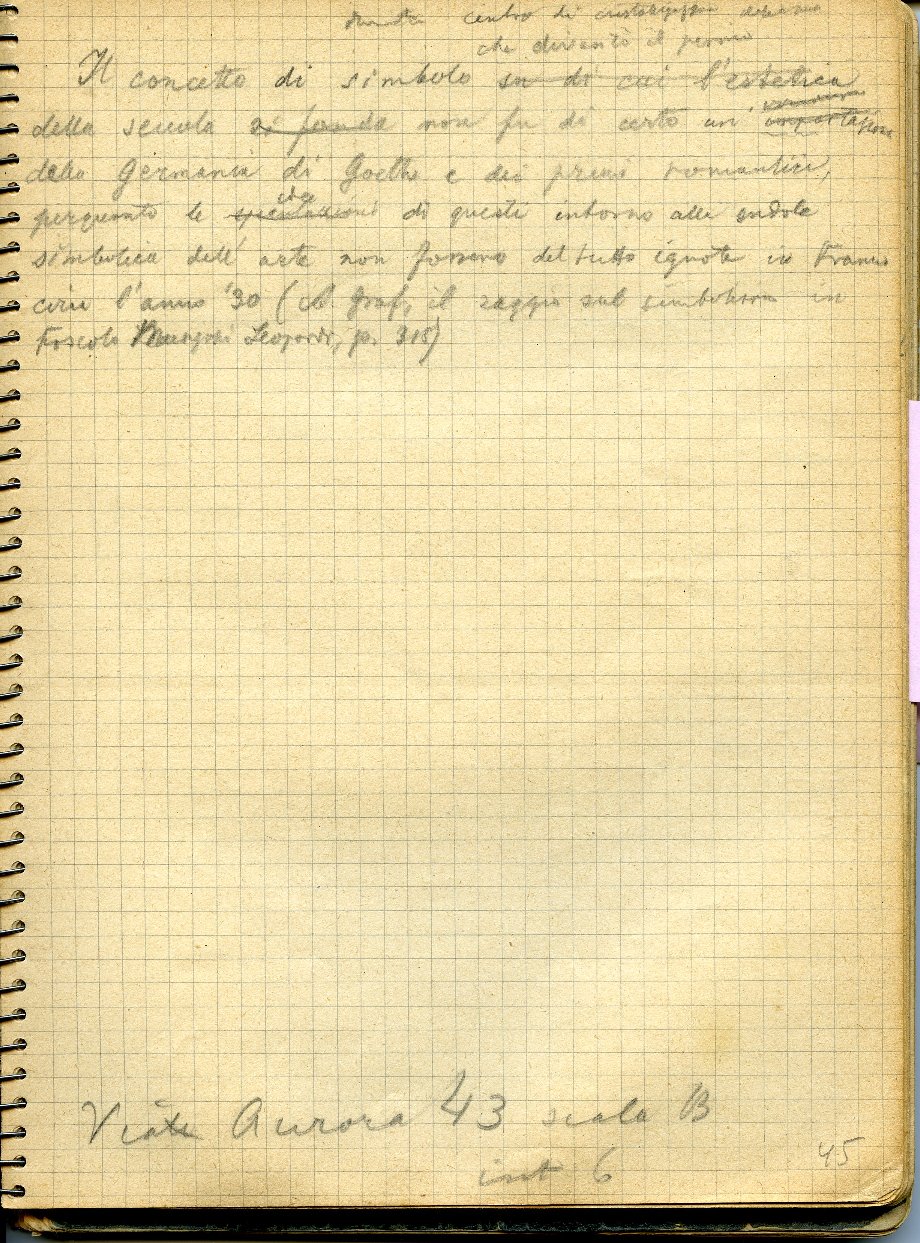 centro di cristallizzazione
che diventò il pernio
Il concetto di simbolo su di cui l'estetica
della scuola si fonda non fu di certo un' importazione
della Germania di Goethe e dei primi romantici,
perquanto le idee speculazioni di questi intorno alla indole
simbolica dell' arte non fossero del tutto ignote in Francia
circa l'anno '30 (cf Graf, il saggio sul simbolismo in
Foscolo Manzoni Leopardi, p. 318)
Viale Aurora 43 scala B
int 6
45